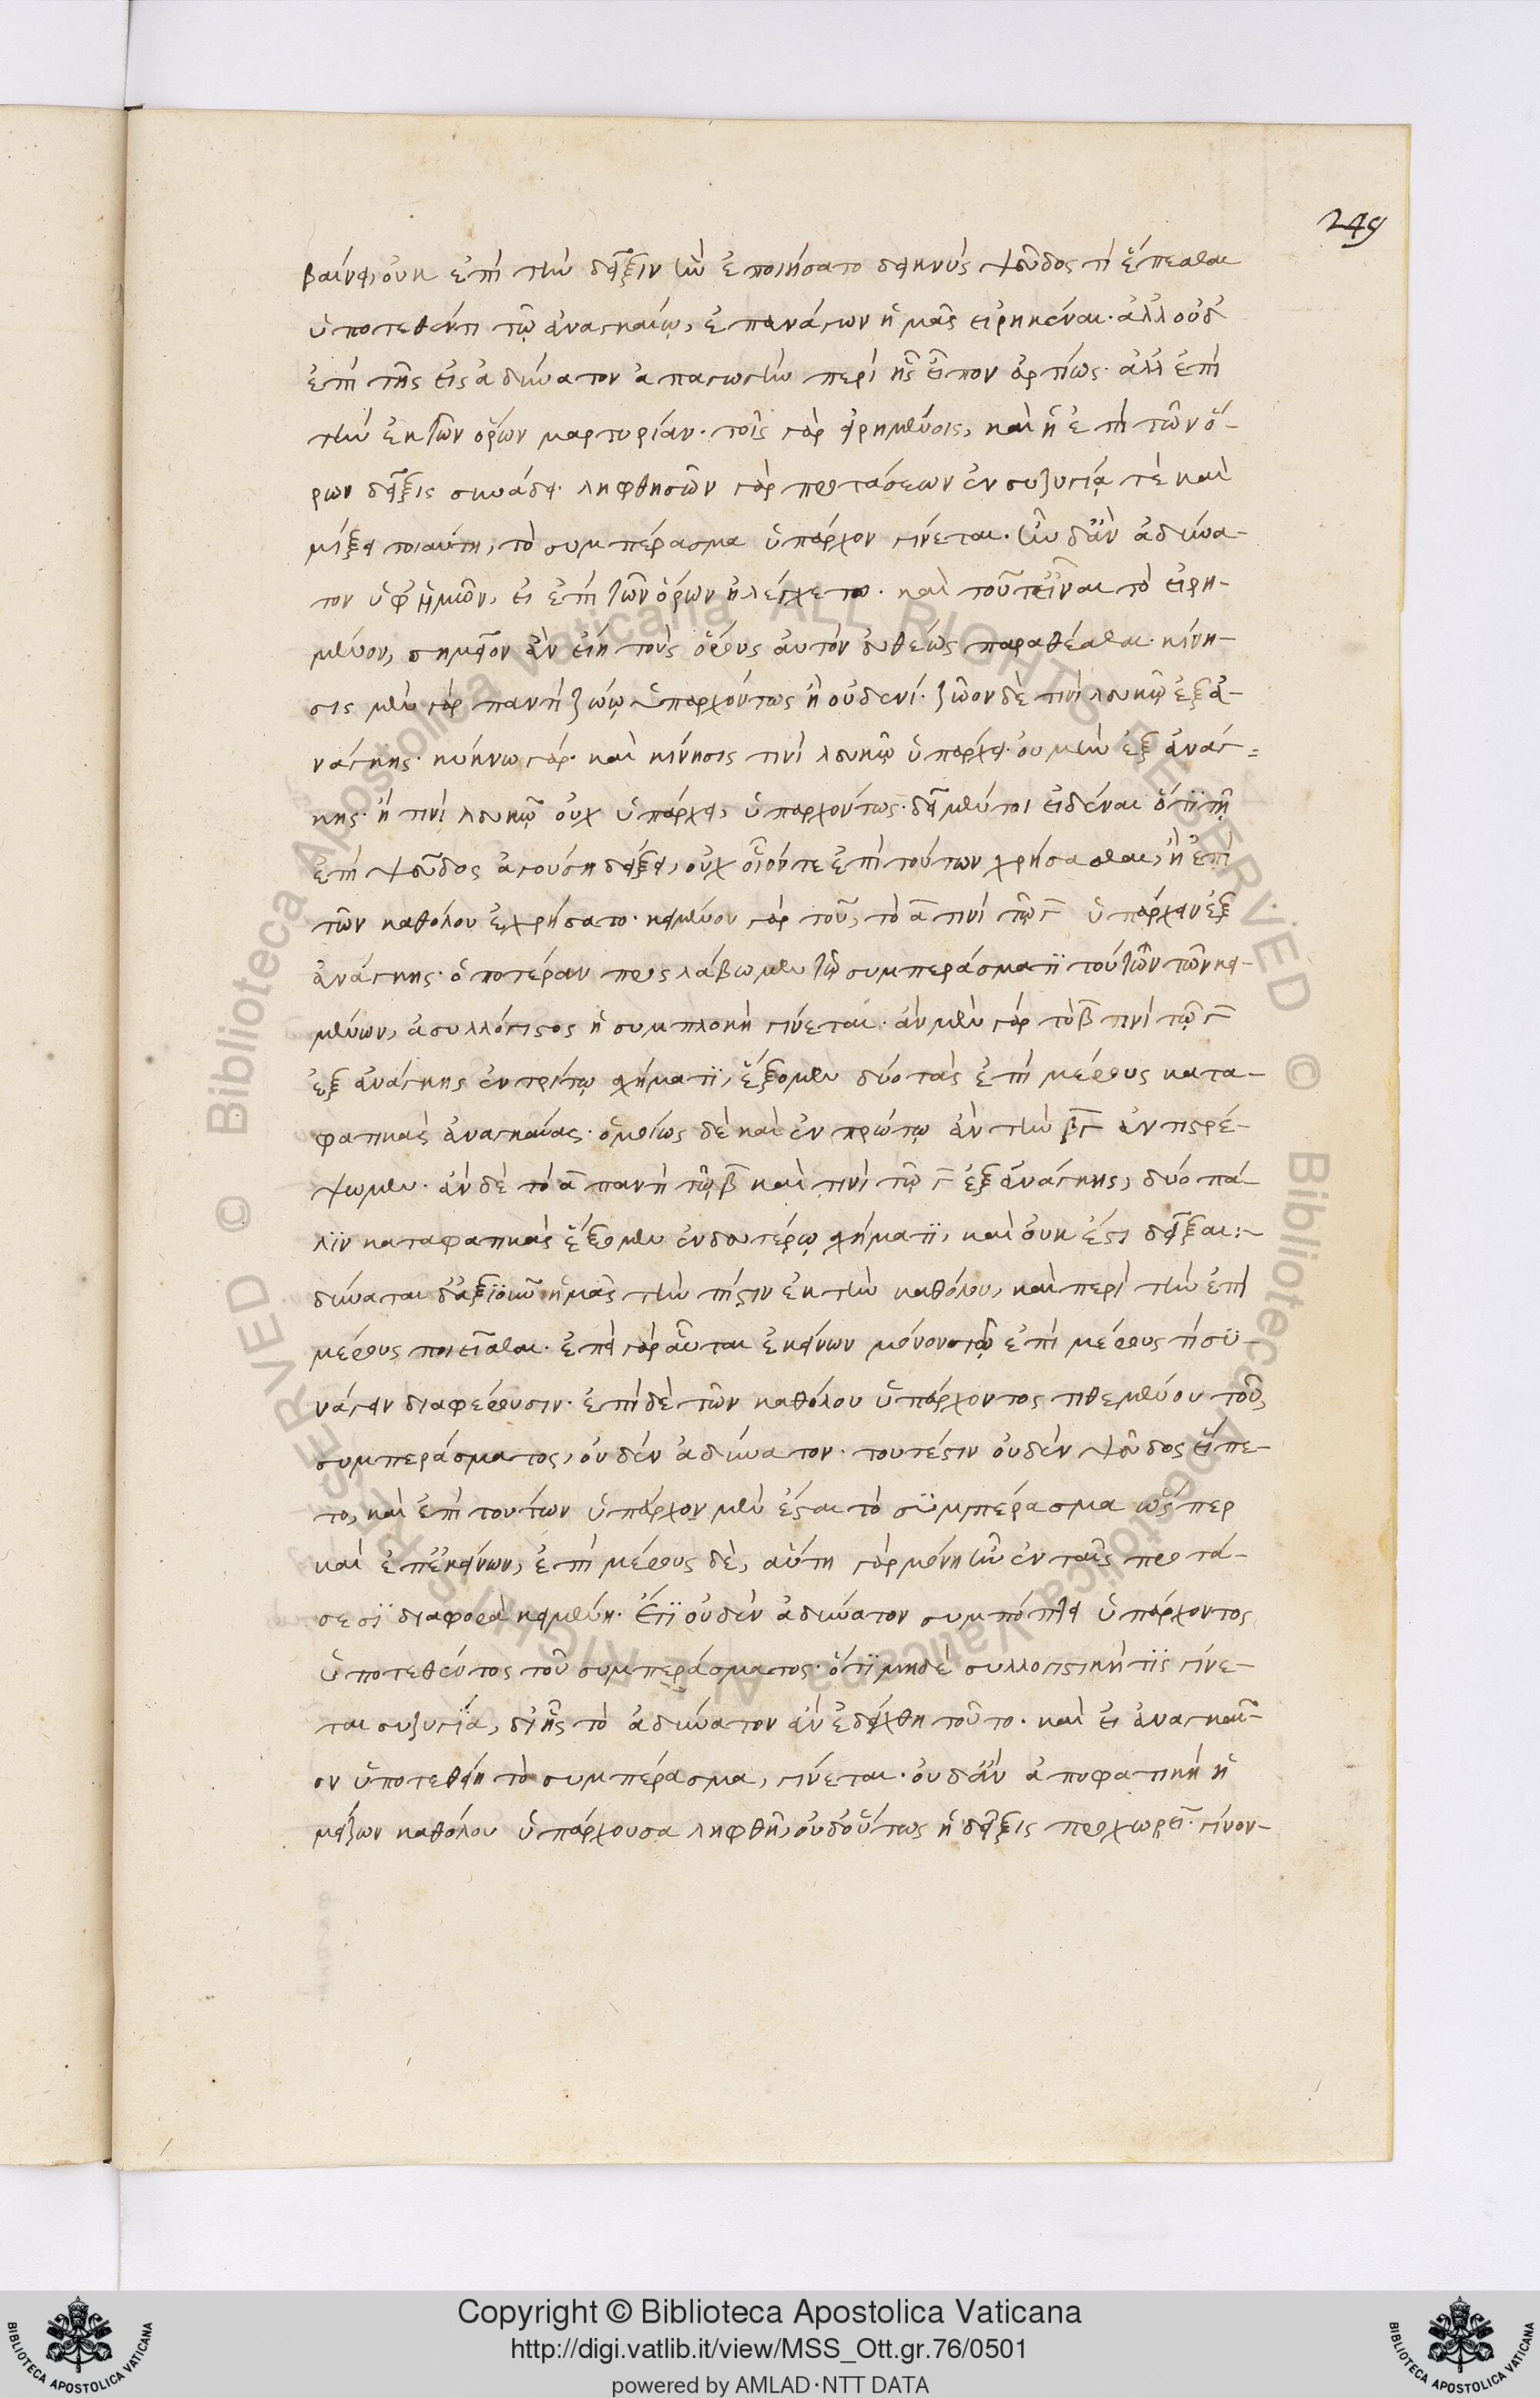 249
βαίνει, οὐκ ἐπὶ τὴν δεῖξιν ἣν ἐποιήσατο δεικνὺς ψεῦδος τὶ ἕπεσθαι
ὑποτεθέντι τῷ ἀναγκαίῳ, ἐπανάγων ἡμᾶς εἰρηκέναι. ἀλλ' οὐδ'
ἐπὶ τῆς εἰς ἀδύνατον ἀπαγωγὴν περὶ ἧς εἶπον ἀρτίως. ἀλλ' ἐπὶ
τὴν ἐκ τῶν ὅρων μαρτυρίαν. τοῖς γὰρ εἰρημένοις, καὶ ἡ ἐπὶ τῶν ὅ-
ρων δεῖξις συνάδει. ληφθεισῶν γὰρ προτάσεων ἐν συζυγίᾳ τὲ καὶ
μίξει τοιαύτῃ, τὸ συμπέρασμα ὑπάρχον γίνεται. ἦν δ' ἂν ἀδύνα-
τον ὑφ' ἡμῶν, εἰ ἐπὶ τῶν ὅρων ἠλέγχετο. καὶ τοῦτ' εἶναι τὸ εἰρη-
μένον, σημεῖον ἂν εἴη τοὺς ὅρους αὐτὸν εὐθέως παραθέσθαι. κίνη-
σις μὲν γὰρ παντὶ ζώῳ ὑπαρχόντως ἢ οὐδενί. ζῶον δὲ τινὶ λευκῷ ἐξ ἀ-
νάγκης. κύκνω γάρ. καὶ κίνησις τινὶ λευκῷ ὑπάρχει. οὐ μὴν ἐξ ἀνάγ-
κης. ἤ τινὶ λευκῷ οὐχ ὑπάρχει, ὑπαρχόντως. δεῖ μέντοι εἰδέναι ὅτι τῇ
ἐπὶ ψεῦδος ἀγούσῃ δείξει, οὐχ οἷόν τε ἐπὶ τούτων χρήσασθαι, ᾗ ἐπὶ
τῶν καθόλου ἐχρήσατο. κειμένου γὰρ τοῦ, τὸ α τινὶ τῷ γ ὑπάρχειν ἐξ
ἀνάγκης. ὁποτέραν προσλάβωμεν τῷ συμπεράσματι τούτων τῶν κει-
μένων, ἀσυλλόγιστος ἡ συμπλοκὴ γίνεται. ἂν μὲν γὰρ τὸ β τινὶ τῷ γ
ἐξ ἀνάγκης ἐν τρίτῳ σχήματι, ἕξομεν δύο τὰς ἐπὶ μέρους κατα-
φατικὰς ἀναγκαίας. ὁμοίως δὲ καὶ ἐν πρώτῳ ἂν τὴν βγ ἀντιστρέ-
ψωμεν. ἂν δὲ τὸ α παντὶ τῷ β καὶ τινὶ τῷ γ ἐξ ἀνάγκης, δύο πά-
λιν καταφατικὰς ἕξομεν ἐν δευτέρῳ σχήματι, καὶ οὐκ ἔστι δεῖξαι:~
δύναται δ' ἀξιοῦν ἡμᾶς τὴν πίστιν ἐκ τὴν καθόλου, καὶ περὶ τὴν ἐπὶ
μέρους ποιεῖσθαι. ἐπεὶ γὰρ αὗται ἐκείνων μόνον τῷ ἐπὶ μέρους τὶ συ-
νάγειν διαφέρουσιν. ἐπὶ δὲ τῶν καθόλου ὑπάρχοντος τιθεμένου τοῦ,
συμπεράσματος, οὐδὲν ἀδύνατον. τουτέστιν οὐδὲν ψεῦδος εἵπε-
το, καὶ ἐπὶ τούτων ὑπάρχον μὲν ἔσται τὸ συμπέρασμα ὥσπερ
καὶ ἐπ' ἐκείνων, ἐπὶ μέρους δὲ, αὕτη γὰρ μόνη ἦν ἐν ταῖς προτά-
σεσι διαφορὰ κειμένη. Ἔτι οὐδὲν ἀδύνατον συμπίπτει ὑπάρχοντος
ὑποτεθέντος τοῦ συμπεράσματος. ὅτι μηδὲ συλλογιστικὴ τὶς γίνε-
ται συζυγία, δι' ἧς τὸ ἀδύνατον ἂν ἐδείχθη τοῦτο. καὶ εἰ ἀναγκαῖ-
ον ὑποτεθείη τὸ συμπέρασμα, γίνεται. οὐδ' ἂν ἀποφατικὴ ἡ
μείζων καθόλου ὑπάρχουσα ληφθῇ, οὐδ' οὕτως ἡ δεῖξις προχωρεῖ. γίνον-
Copyright © Biblioteca Apostolica Vaticana
http://digi.vatlib.it/view/MSS_Ott.gr.76/0501
powered by AMLAD·NTT DATA